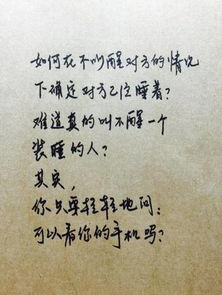 如何在不叫醒对方的情况
下确定对方已经睡着?
难道真的叫不醒一个
装睡的人?
其实,
你只要轻轻地问:
可以看你的手机吗?